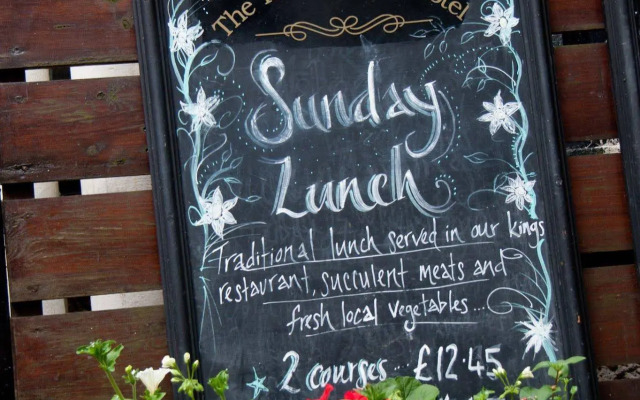 The
Sunday
Lunch
Traditional lunch served in our kings
restaurant, succulent meats and
fresh local vegetables...
2 courses .. £12.45